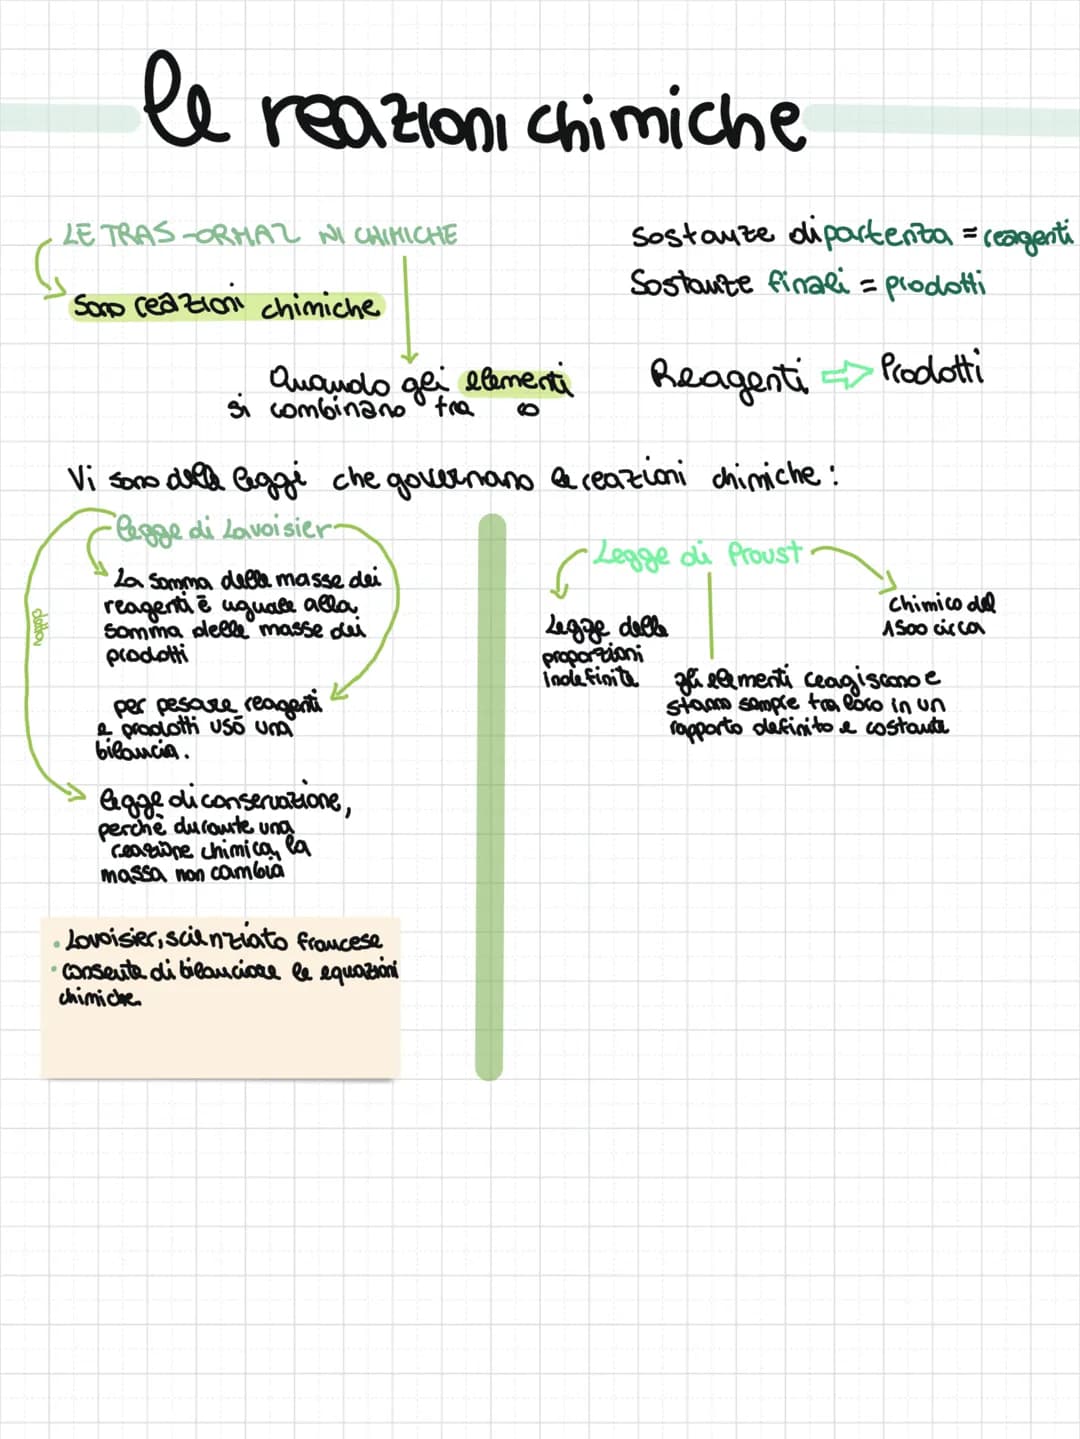 le reazioni chimiche
LE TRAS-ORMAZ NI CHIMICHE
Sono reazioni chimiche
Quando gli elementi
si combinano tra
Sostanze di partenza = reagenti
Sostanze finali = prodotti
Reagenti ⇒ Prodotti
Vi sono delle leggi che governano le reazioni chimiche:
legge di Lavoisier
La somma delle masse dei
reagenti è uguale alla
somma delle masse dei
prodotti
per pesare reagenti
e prodotti usò una
bilancia.
detta
legge di conservazione,
perchè durante una
reazione chimica, la
massa non cambia
• Lavoisier, scienziato francese
• consente di bilanciare le equazioni
chimiche.
Legge di Proust
Legge delle
proporzioni
indefinite
gli elementi reagiscono e
stanno sempre tra loro in un
rapporto definito e costante
Chimico del
1500 circa